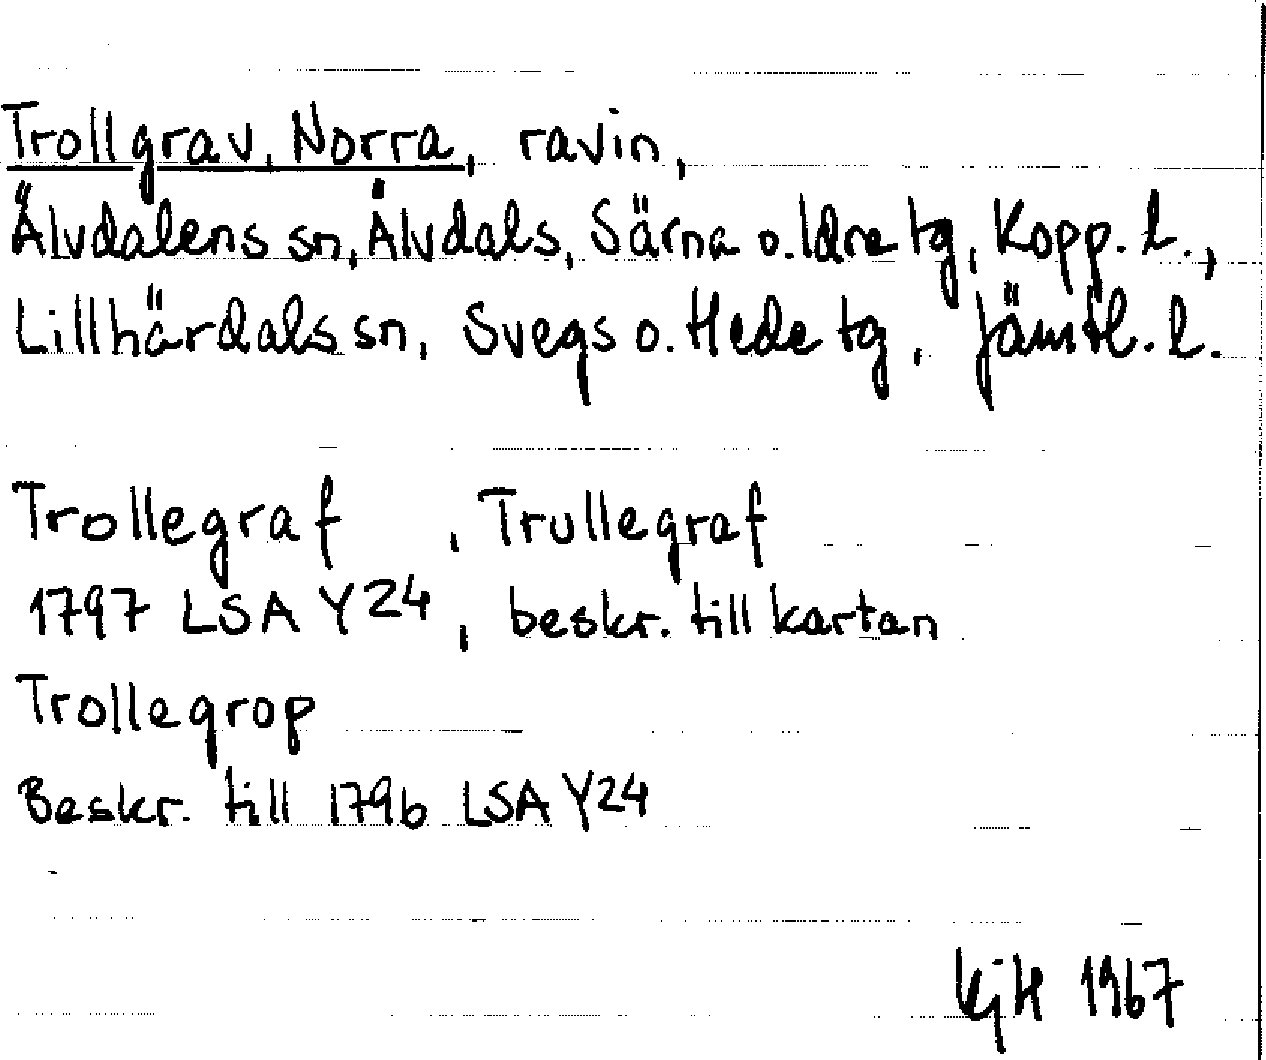 Trollgrav, Norra, ravin,
Älvdalens sn, Älvdals, Särna o. Idre tg, Kopp. l.,
Lillhärdals sn, Svegs o. Hede tg, Jämtl. l.
Trollegraf , Trullegraf
1797 LSA Y24, beskr. till kartan
Trollegrop
Beskr. till 1796 LSA Y24
KjH 1967